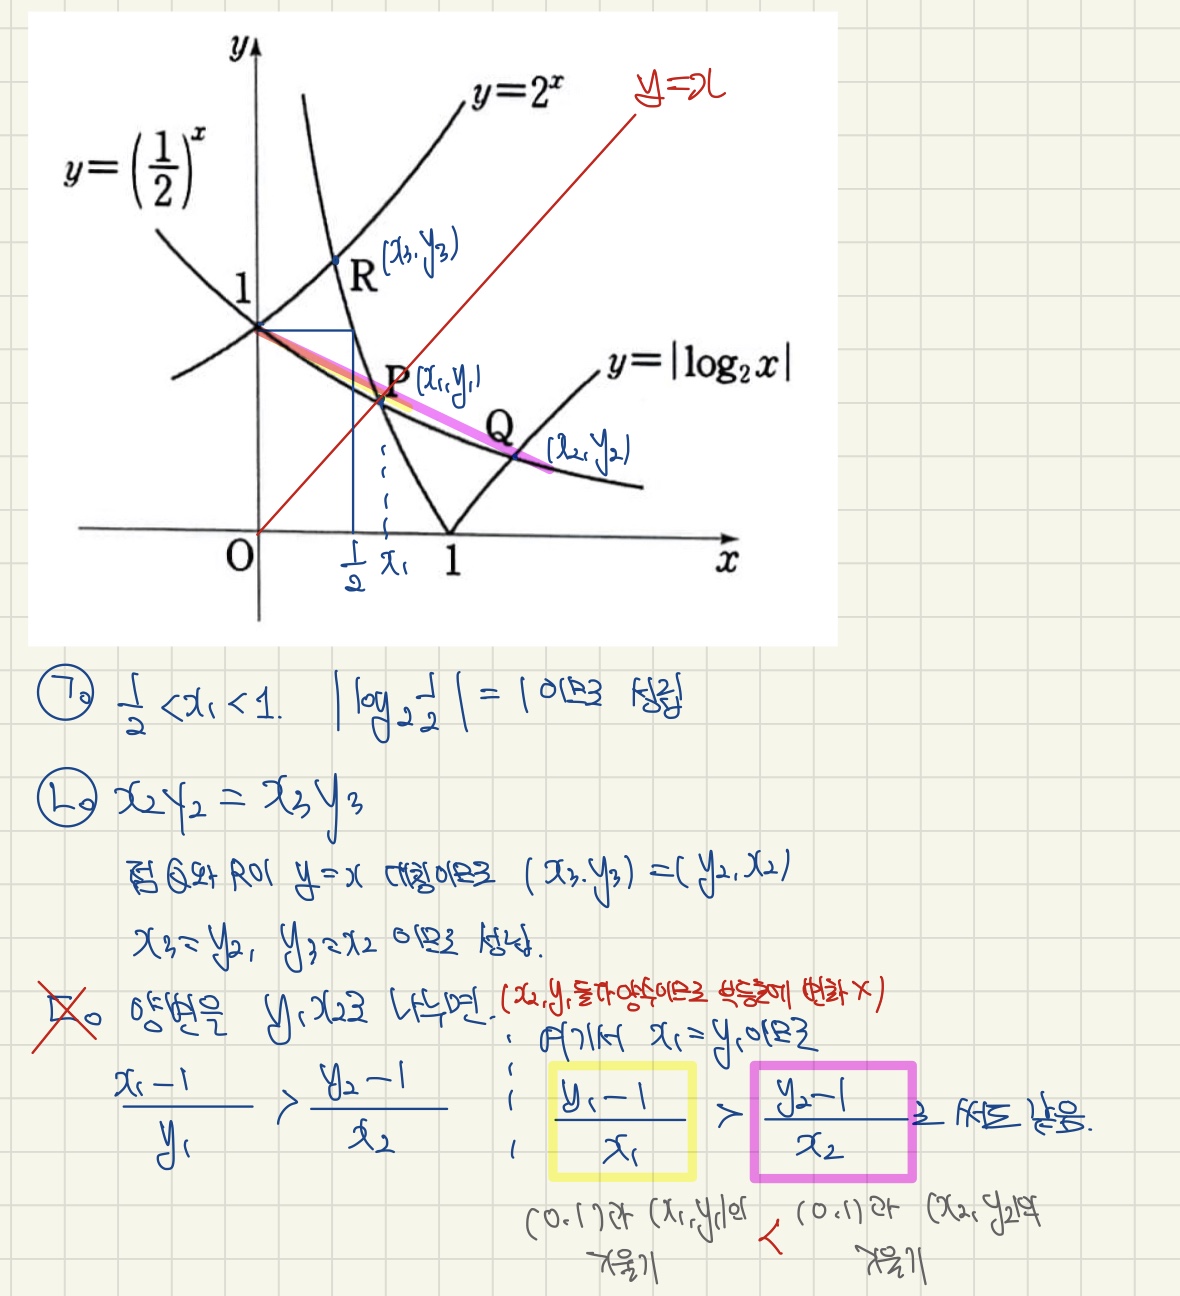 y
y=2ˣ
y=x
y=(1/2)ˣ
R(x₃, y₃)
1
P(x₁, y₁)
y=|log₂x|
Q
(x₂, y₂)
O
1/2
x₁
1
x
ㄱ. 1/2 < x₁ < 1. |log₂ 1/2| = 1 이므로 성립
ㄴ. x₂y₂ = x₃y₃
점 Q와 R이 y=x 대칭이므로 (x₃, y₃) = (y₂, x₂)
x₃=y₂, y₃=x₂ 이므로 성립.
ㄷ. 양변을 y₁x₂로 나누면. (x₂, y₁ 둘다 양수이므로 부등호에 변화 X)
여기서 x₁=y₁이므로
(x₁-1)/y₁ > (y₂-1)/x₂
(y₁-1)/x₁ > (y₂-1)/x₂ 로 써도 같음.
(0,1)과 (x₁,y₁)의 기울기 < (0,1)과 (x₂,y₂)의 기울기